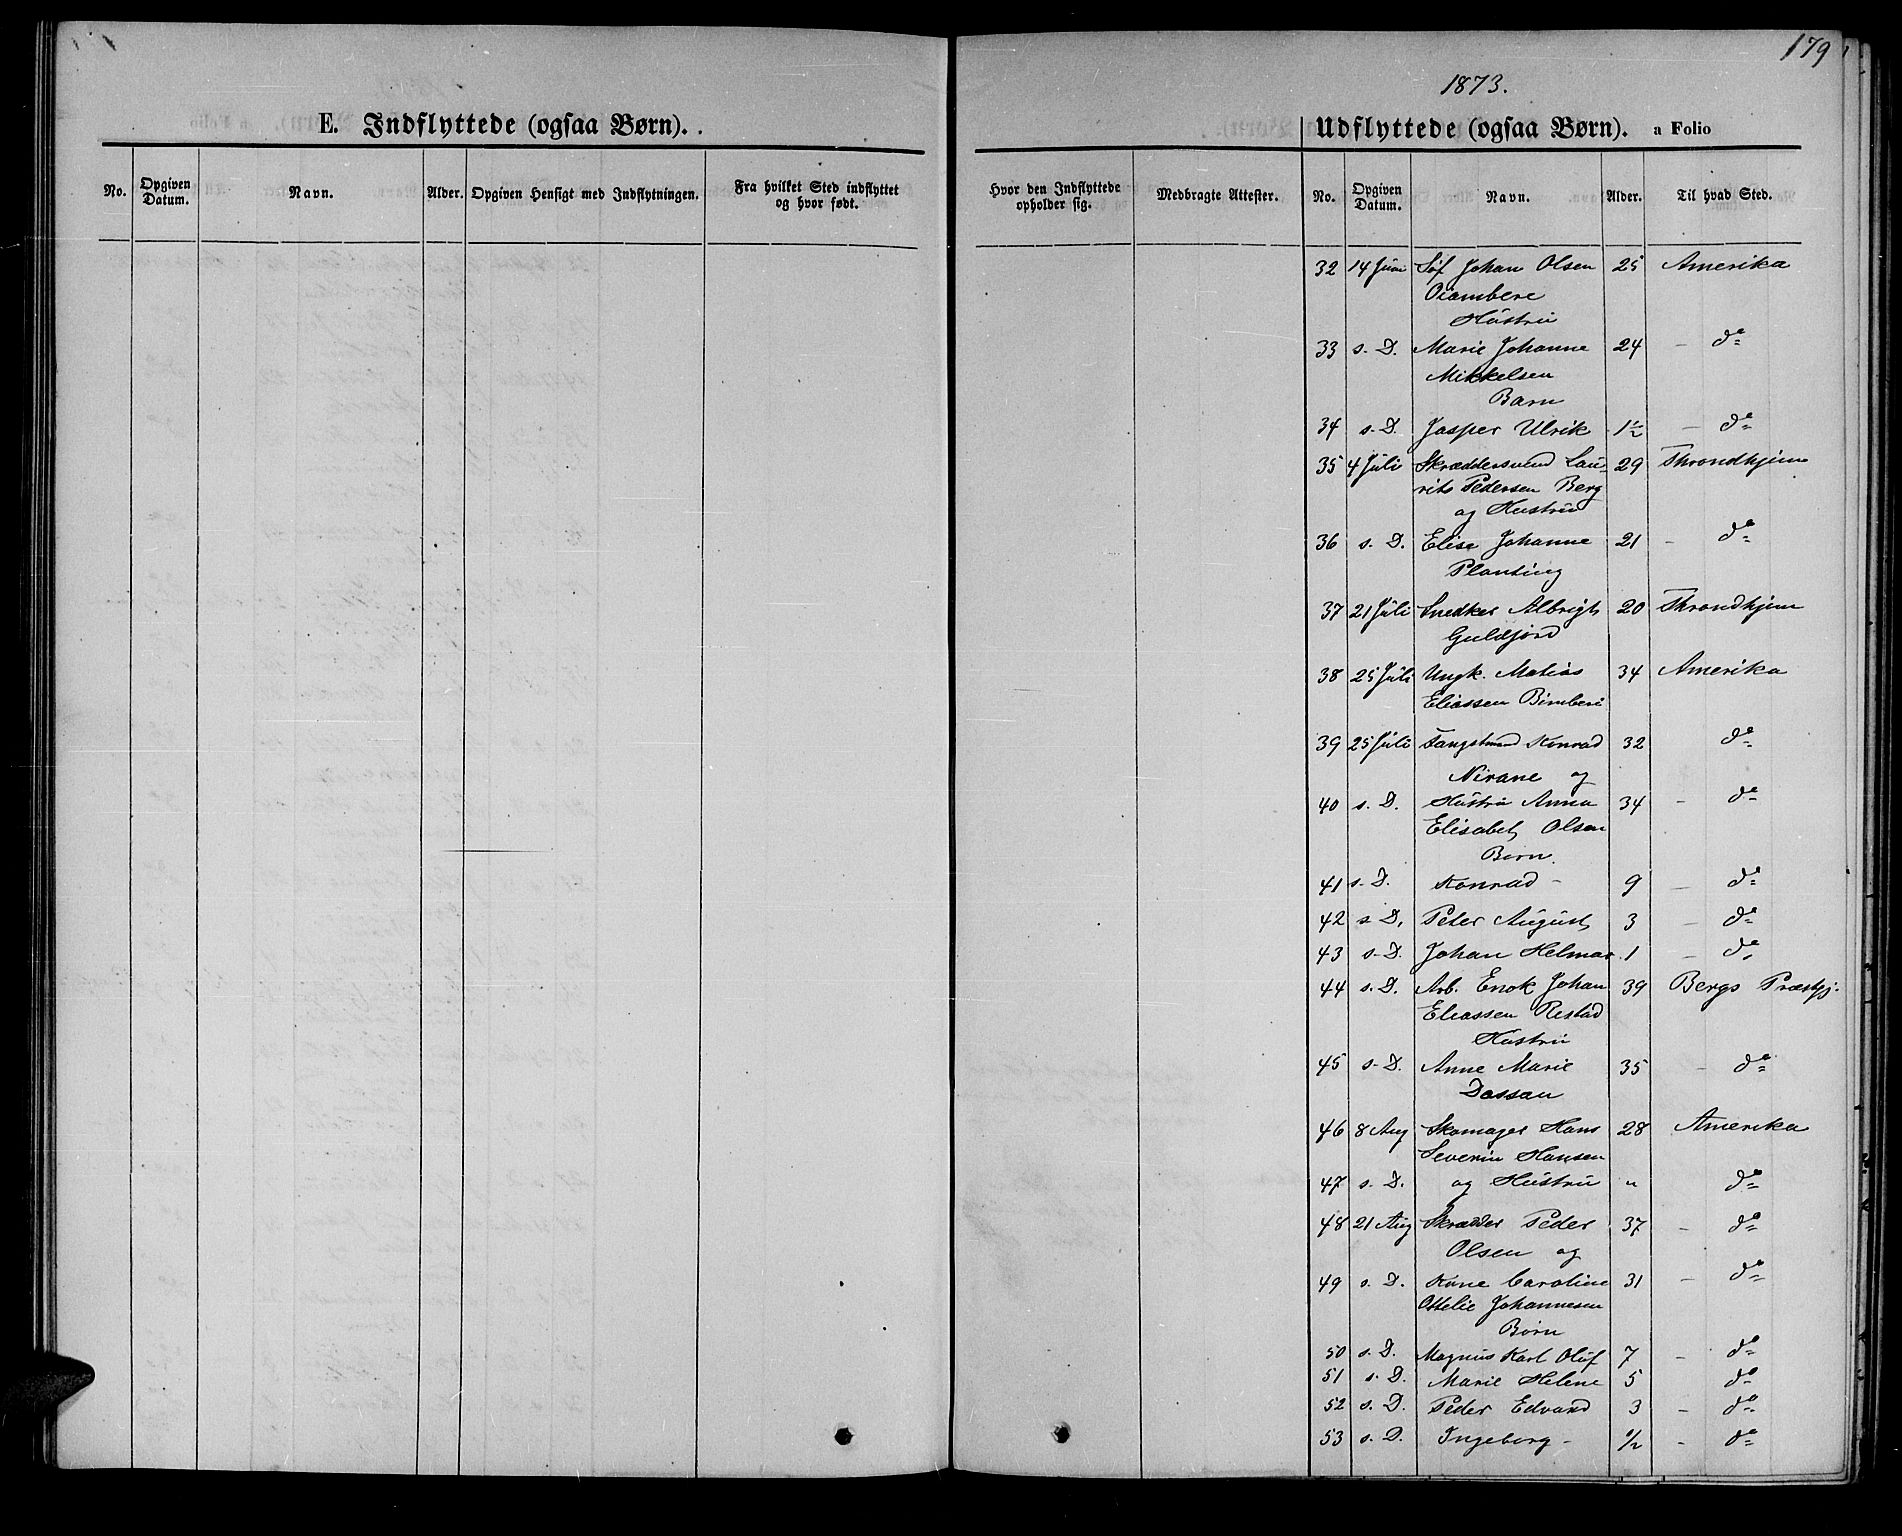 179
1873.
E. Indflyttede (ogsaa Børn).
Udflyttede (ogsaa Børn). a Folio
No. Opgiven Datum. Navn. Alder. Opgiven Hensigt med Indflytningen. Fra hvilket Sted indflyttet og hvor født.
Hvor den Indflyttede opholder sig. Medbragte Attester. No. Opgiven Datum. Navn. Alder. Til hvad Sted.
32 14 Juni Søf Johan Olsen 25 Amerika
Hustru
33 s. D. Marie Johanne 24 — do
Mikkelsen
Barn
34 s. D. Jasper Ulrik 1½ — do
35 4 Juli Skræddersvend Lau- 29 Throndhjem
rits Pedersen Berg
og Hustru
36 s. D. Elise Johanne 21 — do
Planting
37 21 Juli Snedker Albrigt 20 Throndhjem
Guldfjord
38 25 Juli Ungk. Matias 34 Amerika
Eliassen
39 25 Juli Fangstmand Konrad 32 do
Nirane og
40 s. D. Hustru Anna 34 — do
Elisabet Olsen
Børn
41 s. D. Konrad — 9 — do
42 s. D. Peter August 3 — do
43 s. D. Johan Helmar 1 — do
44 s. D. Arb. Enok Johan 39 Bergs Præstgj.
Eliassen Restad
Hustru
45 s. D. Anne Marie 35 — do
Dassau
46 8 Aug Skomager Hans 28 Amerika
Severin Hansen
47 s. D. og Hustru " do
48 21 Aug Skrædder Peder 37 — do
Olsen og
49 s. D. Kone Caroline 31 — do
Ottelie Johannesen
Børn
50 s. D. Magnus Karl Oluf 7 — do
51 s. D. Marie Helene 5 do
52 s. D. Peder Edvard 3 — do
53 s. D. Ingeborg — ½ — do